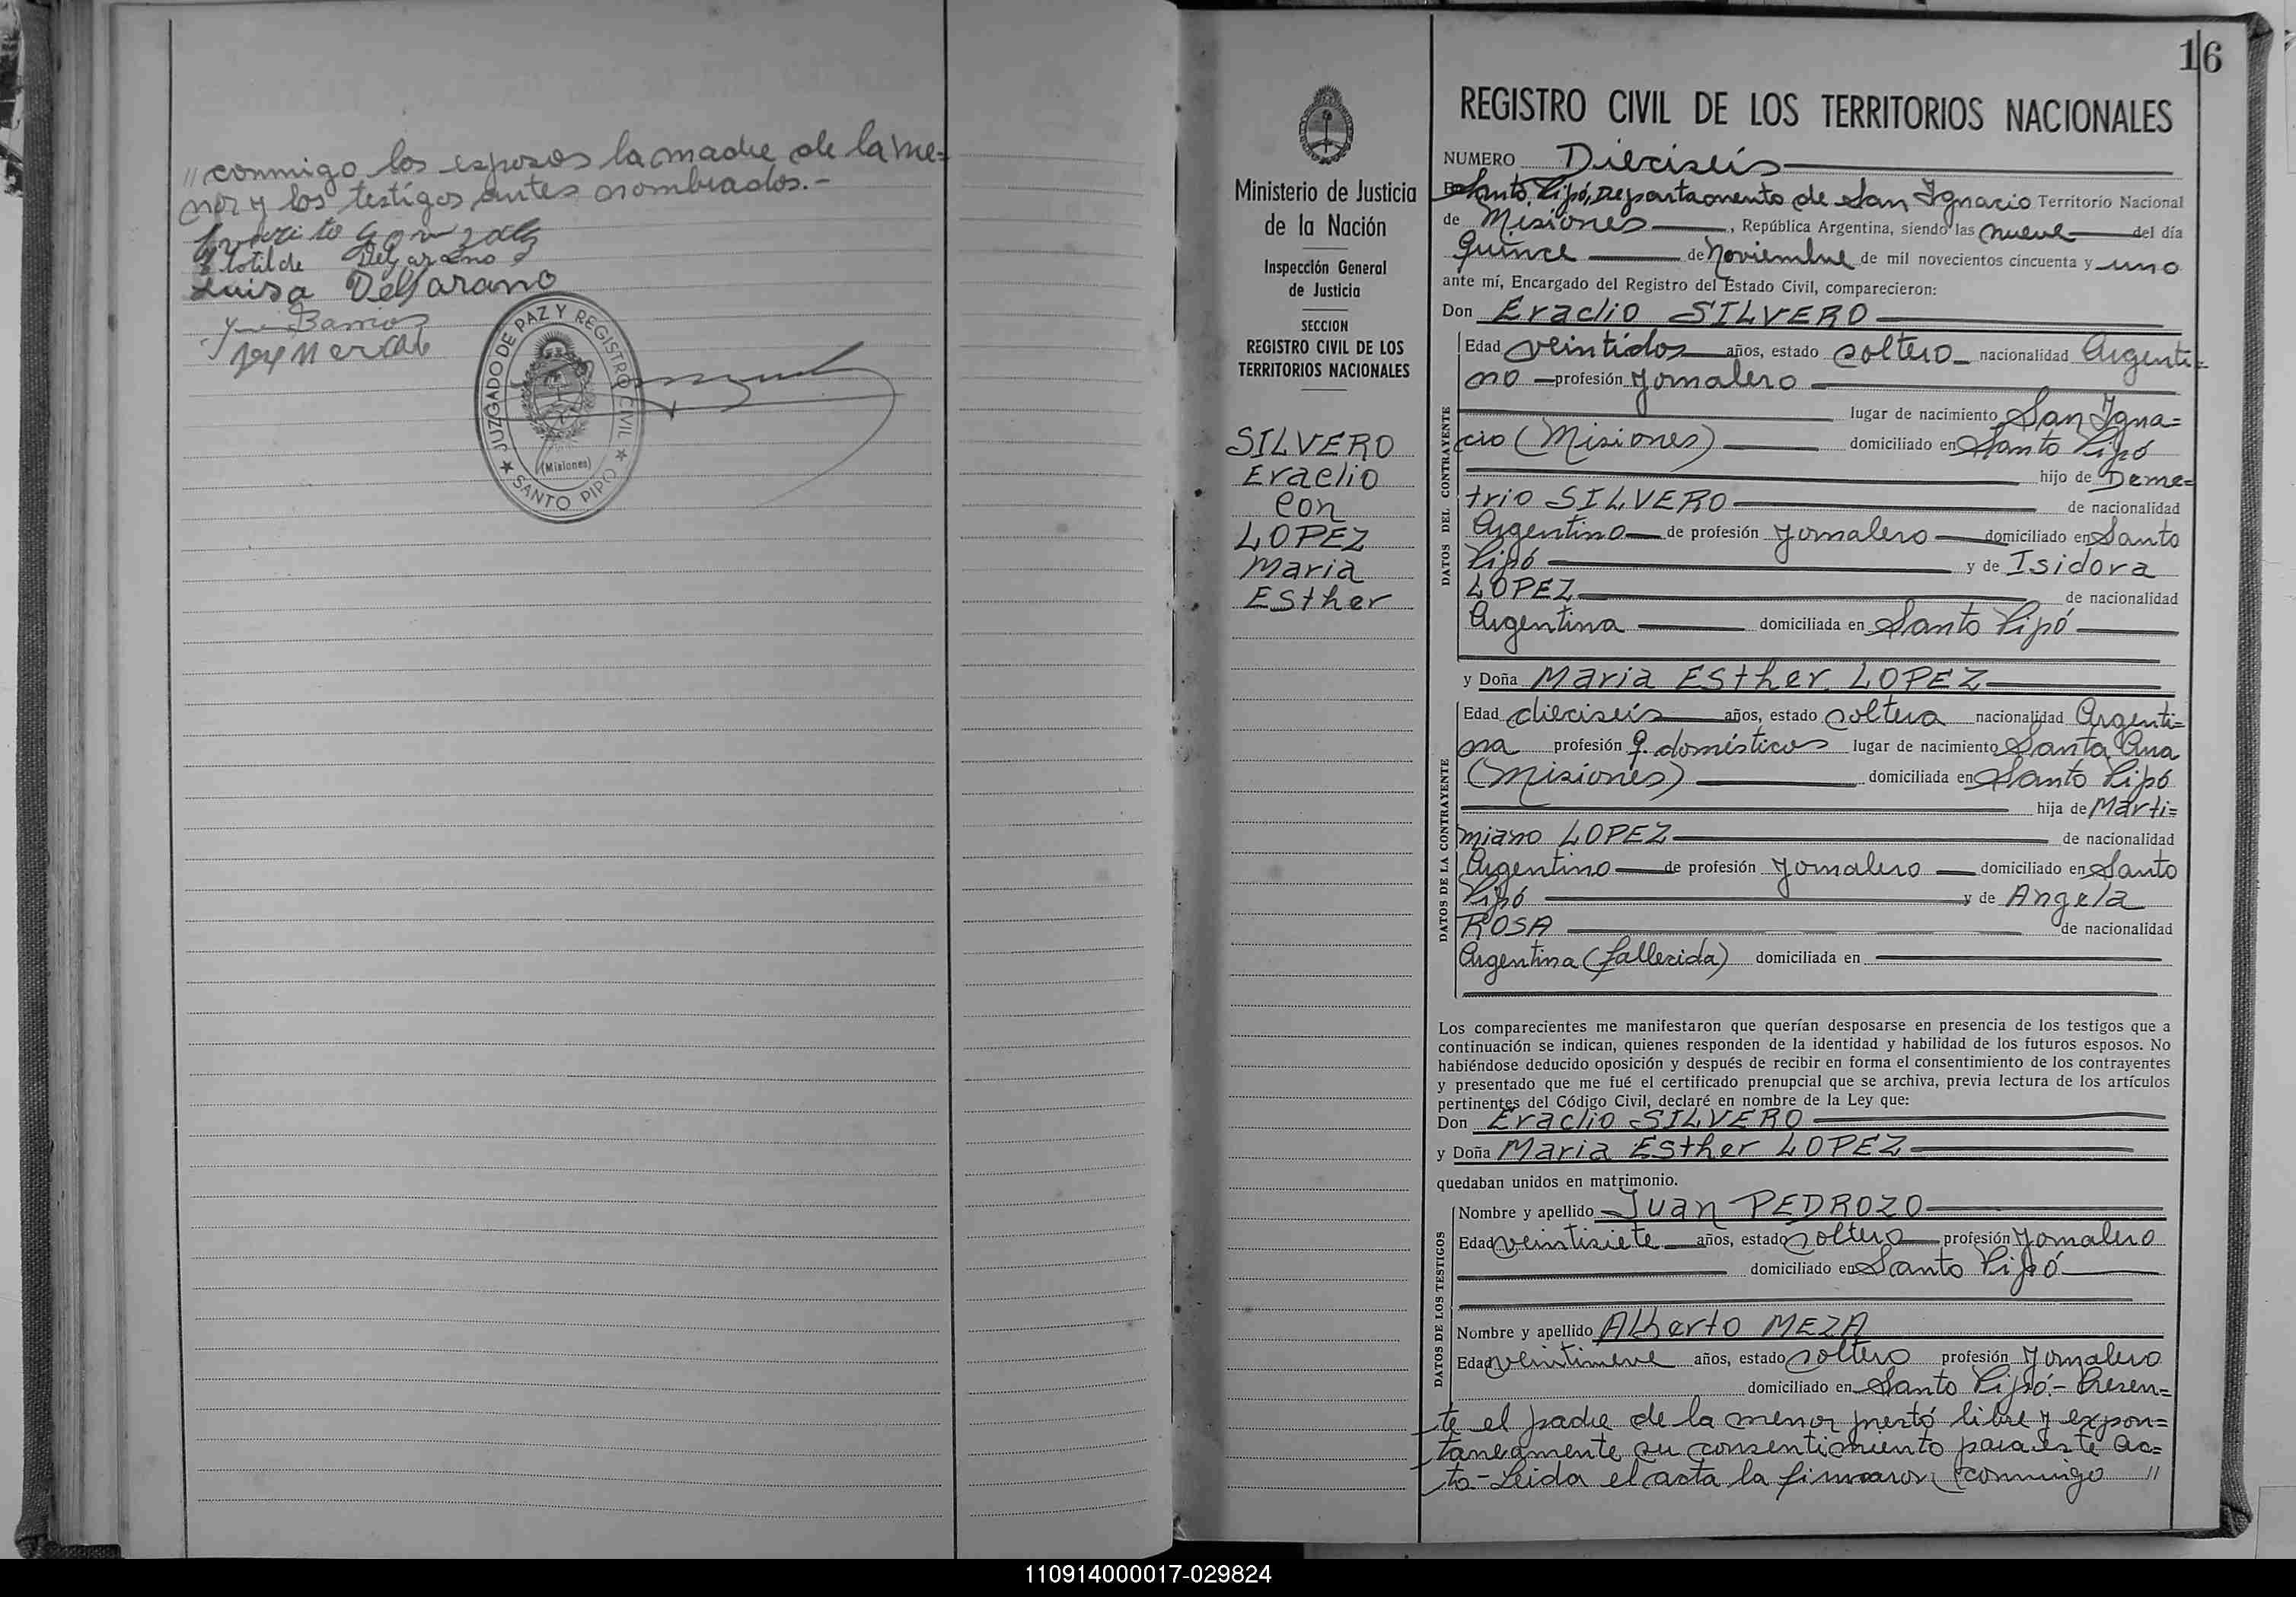 // conmigo los esposos la madre de la me=
nor y los testigos antes nombrados.-
Clotilde Delgarano
Luisa Delgarano
Barrios
JUZGADO DE PAZ Y REGISTRO CIVIL
(Misiones)
★ SANTO PIPÓ ★
16
Ministerio de Justicia
de la Nación
Inspección General
de Justicia
SECCION
REGISTRO CIVIL DE LOS
TERRITORIOS NACIONALES
SILVERO
Eraclio
con
LOPEZ
Maria
Esther
REGISTRO CIVIL DE LOS TERRITORIOS NACIONALES
NUMERO Dieciseis
En Santo Pipó, Departamento de San Ignacio Territorio Nacional
de Misiones, República Argentina, siendo las nueve del día
Quince de Noviembre de mil novecientos cincuenta y uno
ante mí, Encargado del Registro del Estado Civil, comparecieron:
Don Eraclio SILVERO
DATOS DEL CONTRAYENTE
Edad veintidos años, estado soltero nacionalidad Argenti=
no profesión Jornalero
lugar de nacimiento San Igna=
cio (Misiones) domiciliado en Santo Pipó
hijo de Deme=
trio SILVERO de nacionalidad
Argentino de profesión Jornalero domiciliado en Santo
Pipó y de Isidora
LOPEZ de nacionalidad
Argentina domiciliada en Santo Pipó
y Doña Maria Esther LOPEZ
DATOS DE LA CONTRAYENTE
Edad dieciseis años, estado soltera nacionalidad Argenti=
na profesión q. domésticos lugar de nacimiento Santa Ana
(Misiones) domiciliada en Santo Pipó
hija de Marti=
miano LOPEZ de nacionalidad
Argentino de profesión Jornalero domiciliado en Santo
Pipó y de Angela
ROSA de nacionalidad
Argentina (fallecida) domiciliada en
Los comparecientes me manifestaron que querían desposarse en presencia de los testigos que a
continuación se indican, quienes responden de la identidad y habilidad de los futuros esposos. No
habiéndose deducido oposición y después de recibir en forma el consentimiento de los contrayentes
y presentado que me fué el certificado prenupcial que se archiva, previa lectura de los artículos
pertinentes del Código Civil, declaré en nombre de la Ley que:
Don Eraclio SILVERO
y Doña Maria Esther LOPEZ
quedaban unidos en matrimonio.
DATOS DE LOS TESTIGOS
Nombre y apellido Juan PEDROZO
Edad veintisiete años, estado soltero profesión Jornalero
domiciliado en Santo Pipó
Nombre y apellido Alberto MEZA
Edad veintinueve años, estado soltero profesión Jornalero
domiciliado en Santo Pipó.- Presen=
te el padre de la menor prestó libre y expon=
taneamente su consentimiento para este ac=
to - Leida el acta la firmaron conmigo //
110914000017-029824